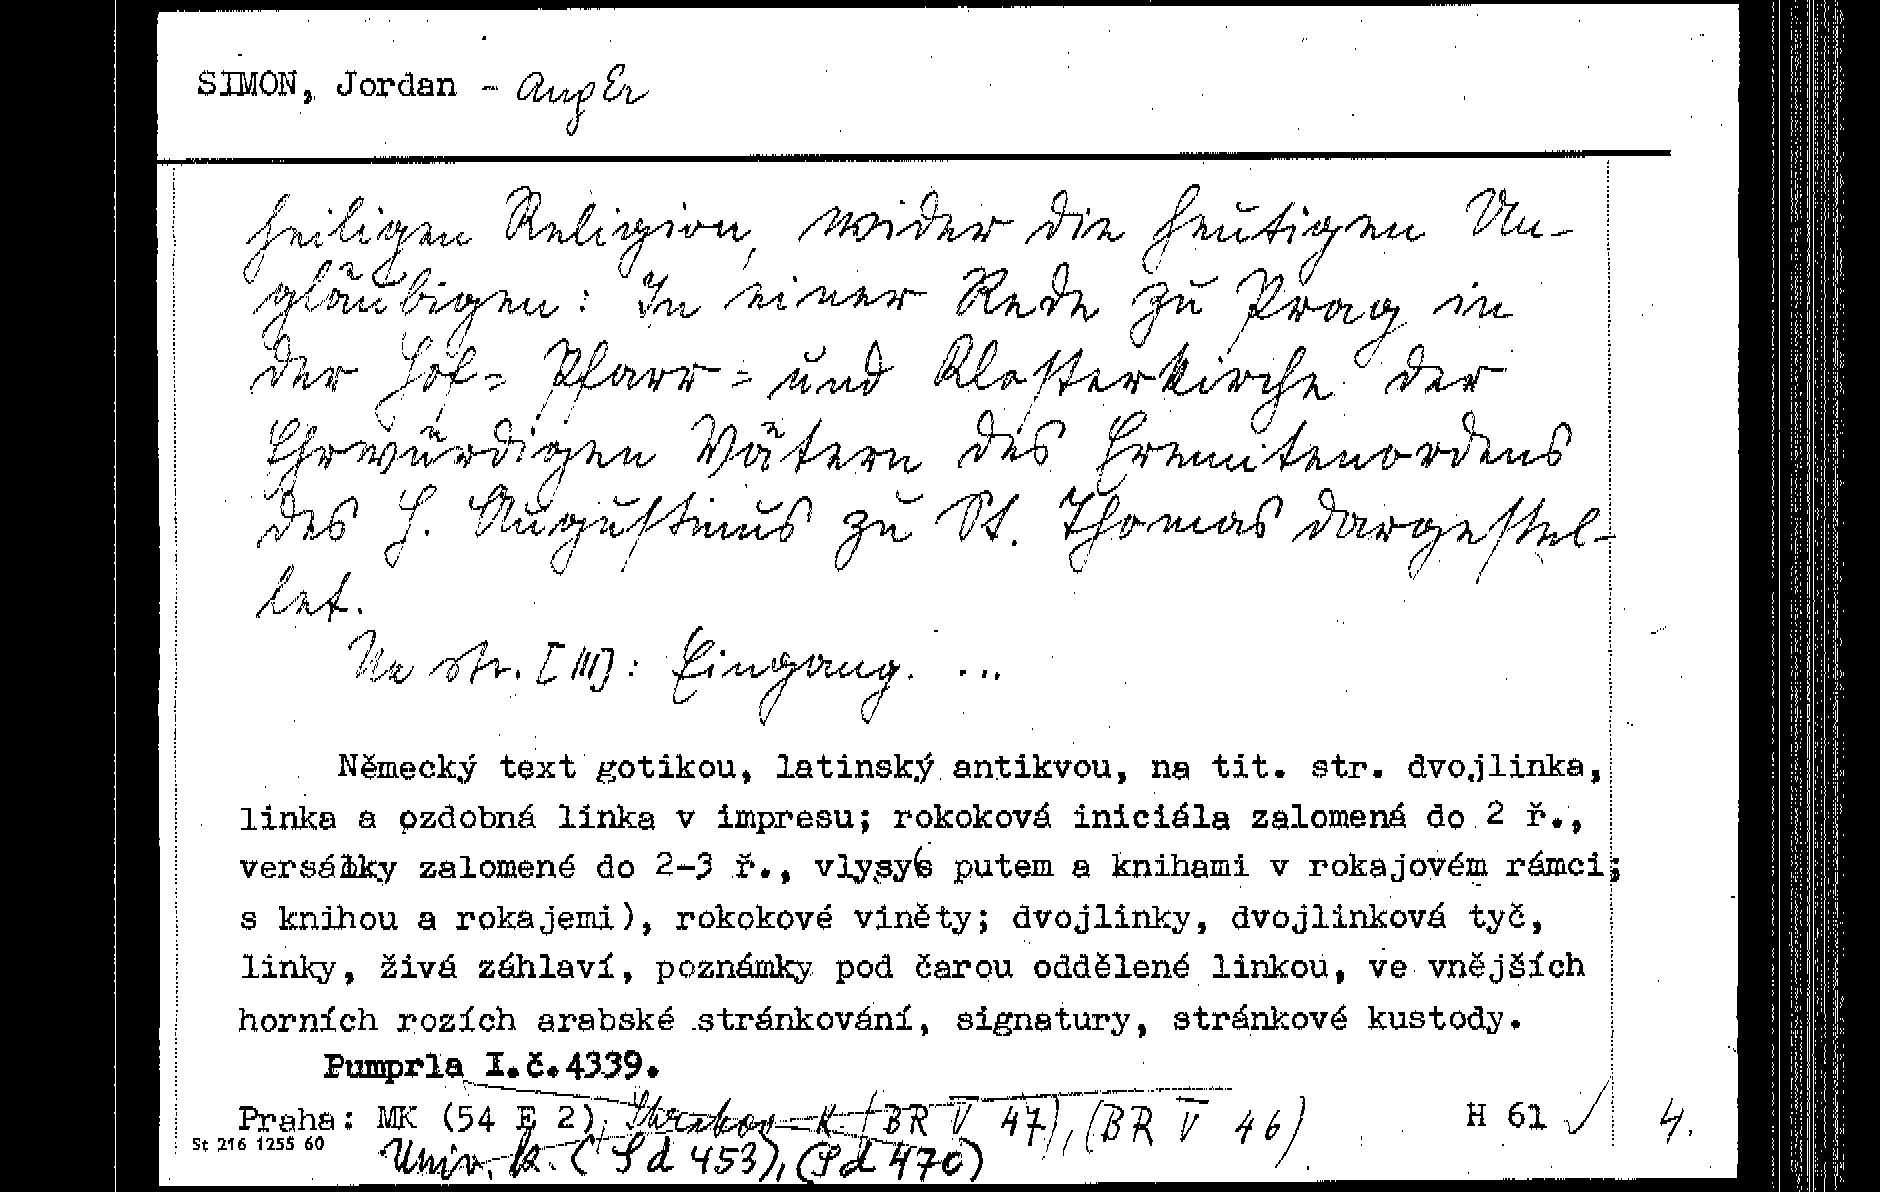 SIMON, Jordan -
heiligen Religion, wider die heutigen Un-
gläubigen: In einer Rede zu Prag in
der Hof= Pfarr= und Klosterkirche der
Ehrwürdigen Vätern des Eremitenordens
des H. Augustinus zu St. Thomas dargestel-
let.
Na str. [III]: Eingang. ...
Německý text gotikou, latinský antikvou, na tit. str. dvojlinka,
linka a ozdobná linka v impresu; rokoková iniciála zalomená do 2 ř.,
versálky zalomené do 2-3 ř., vlysy(s putem a knihami v rokajovém rámci;
s knihou a rokajemi), rokokové viněty; dvojlinky, dvojlinková tyč,
linky, živá záhlaví, poznámky pod čarou oddělené linkou, ve vnějších
horních rozích arabské stránkování, signatury, stránkové kustody.
Pumprla I.č.4339.
Praha: MK (54 E 2), K. (BR V 47), (BR V 46) H 61 ✓ 4.
St 216 1255 60 Univ. k. (Sd 453), (Sd 470)